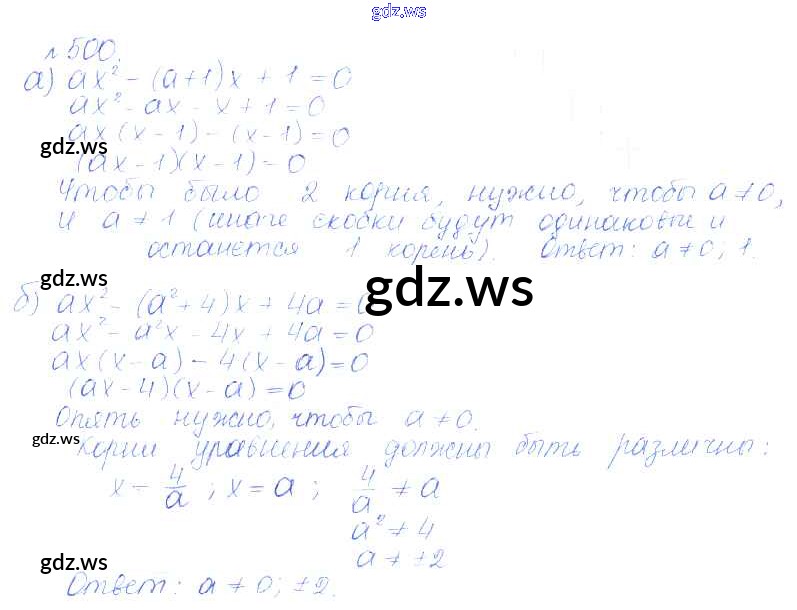 gdz.ws
№500.
а) ax² - (a+1)x + 1 = 0
ax² - ax - x + 1 = 0
ax(x-1) - (x-1) = 0
gdz.ws
(ax-1)(x-1) = 0
Чтобы было 2 корня, нужно, чтобы a ≠ 0,
и a ≠ 1 (иначе скобки будут одинаковые и
останется 1 корень). Ответ: a ≠ 0; 1.
gdz.ws
gdz.ws
б) ax² - (a²+4)x + 4a = 0
ax² - a²x - 4x + 4a = 0
ax(x-a) - 4(x-a) = 0
(ax-4)(x-a) = 0
Опять нужно, чтобы a ≠ 0.
gdz.ws
Корни уравнения должны быть различны:
x = 4/a ; x = a ; 4/a ≠ a
a² ≠ 4
a ≠ ±2
gdz.ws
Ответ: a ≠ 0; ±2.